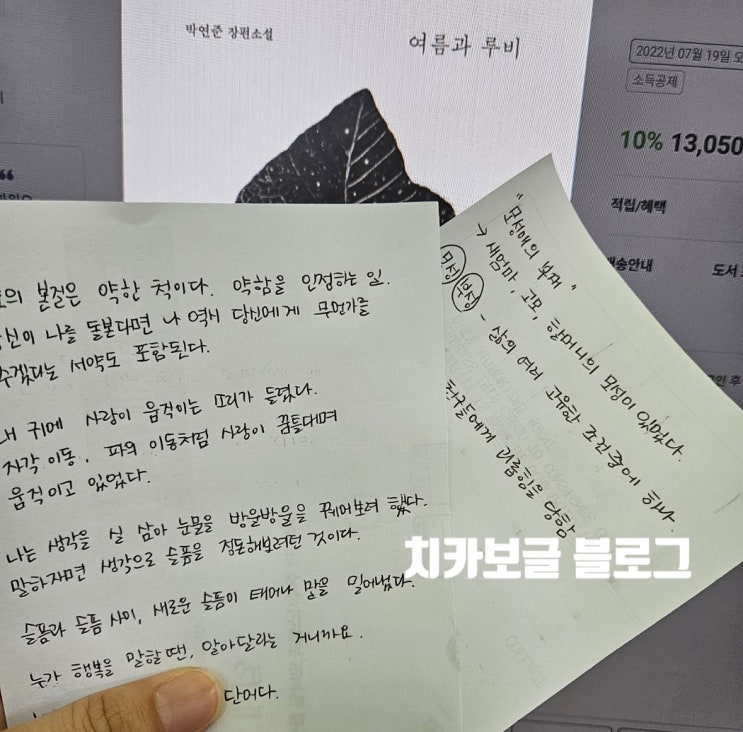 박연준 장편소설
여름과 루비
2022년 07월 19일 오
소득공제
10% 13,050
적립/혜택
배송안내
도서
인 후
의 본질은 약한 척이다. 약함을 인정하는 일.
당신이 나를 돌본다면 나 역시 당신에게 무언가를
주겠다는 서약도 포함된다.
내 귀에 사랑이 움직이는 소리가 들렸다.
지각 이동, 파와 이동처럼 사랑이 꿈틀대며
움직이고 있었다.
나는 생각을 실 삼아 눈물을 방울방울을 꿰매보려 했다.
말하자면 생각으로 슬픔을 정돈해보려던 것이다.
슬픔과 슬픔 사이, 새로운 슬픔이 태어나 말을 밀어냈다.
누가 행복을 말할 땐, 알아달라는 거니까요.
단어다.
"모성애의 부재"
→ 새엄마, 고모, 할머니의 모성이 있었다.
모성
부성 - 삶의 여러 고유한 조건 중에 하나.
친구들에게 괴롭힘을 당함
치카보글 블로그